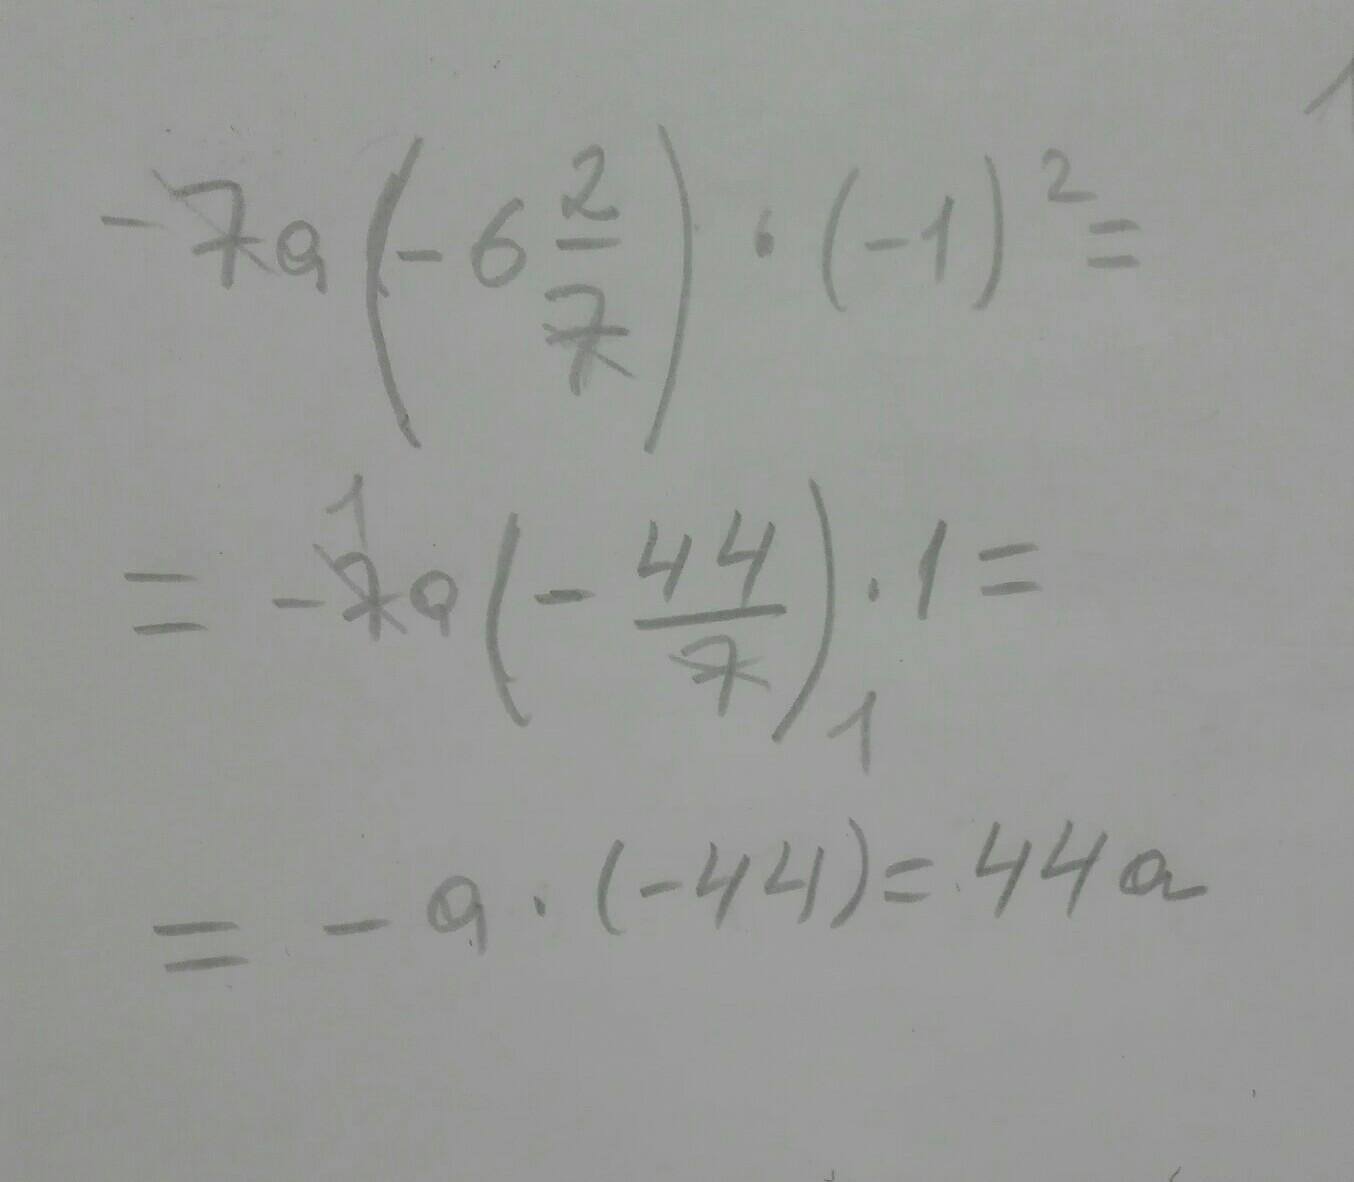 -7a(-6 2/7) · (-1)² =
= -7a(-44/7) · 1 =
1
1
= -a · (-44) = 44a